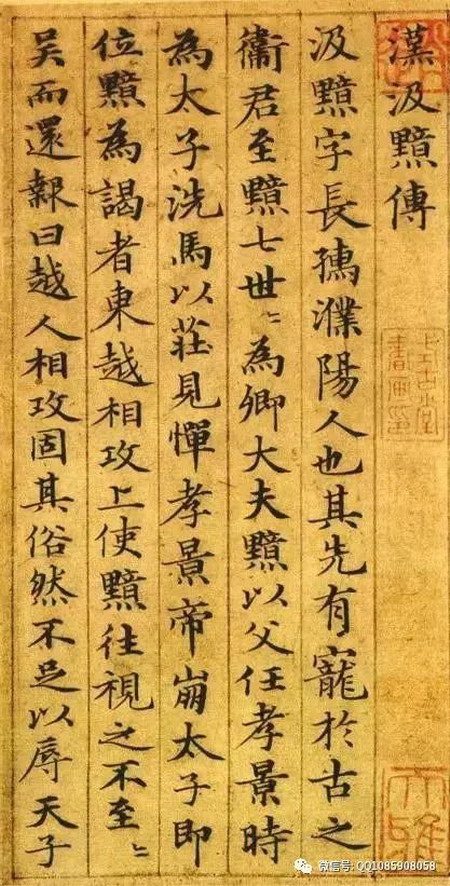 漢汲黯傳
汲黯字長孺濮陽人也其先有寵於古之
衞君至黯七世〻為卿大夫黯以父任孝景時
為太子洗馬以莊見憚孝景帝崩太子即
位黯為謁者東越相攻上使黯往視之不至〻
吳而還報曰越人相攻固其俗然不足以辱天子
式古堂
書畫印
大雅
微信号: QQ1085908058